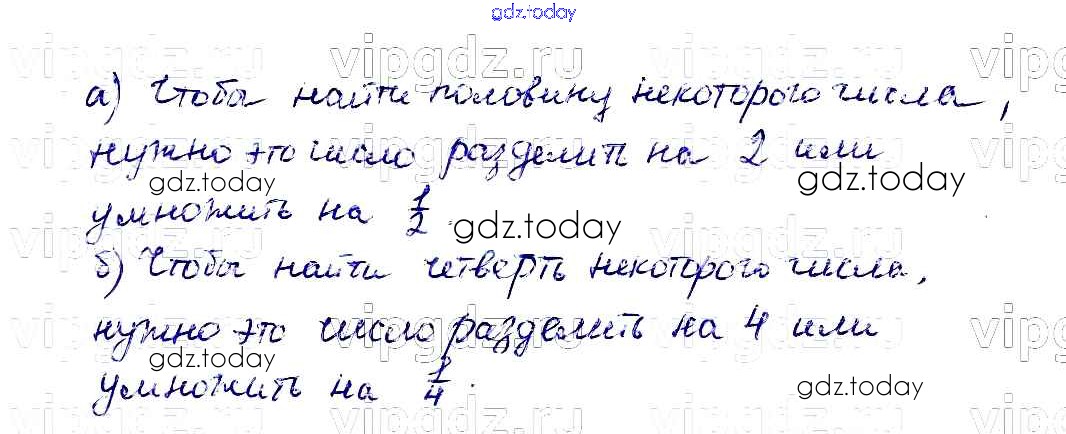 gdz.today
vipgdz.ru vipgdz.ru vipgdz.ru vip
а) Чтобы найти половину некоторого числа,
нужно это число разделить на 2 или
gdz.today gdz.today
умножить на 1/2. gdz.today
vipgdz.ru vipgdz.ru vipgdz.ru vip
б) Чтобы найти четверть некоторого числа,
нужно это число разделить на 4 или
vipgdz.ru vipgdz.ru vipgdz.ru vip
gdz.today gdz.today
умножить на 1/4.
vipgdz.ru vipgdz.ru vipgdz.ru vip